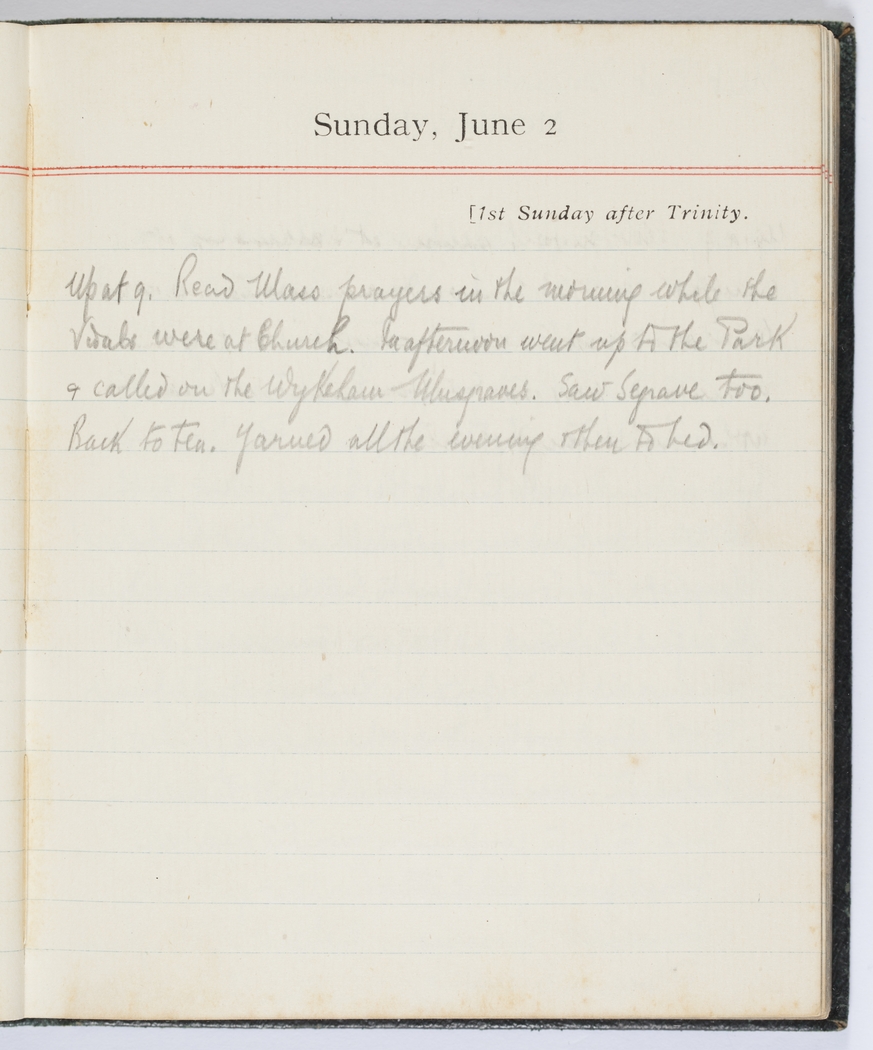 Sunday, June 2
[1st Sunday after Trinity.
Up at 9. Read Mass prayers in the morning while the
Vidals were at Church. In afternoon went up to the Park
& called on the Wykeham-Musgraves. Saw Segrave too.
Back to tea. Yarned all the evening & then to bed.